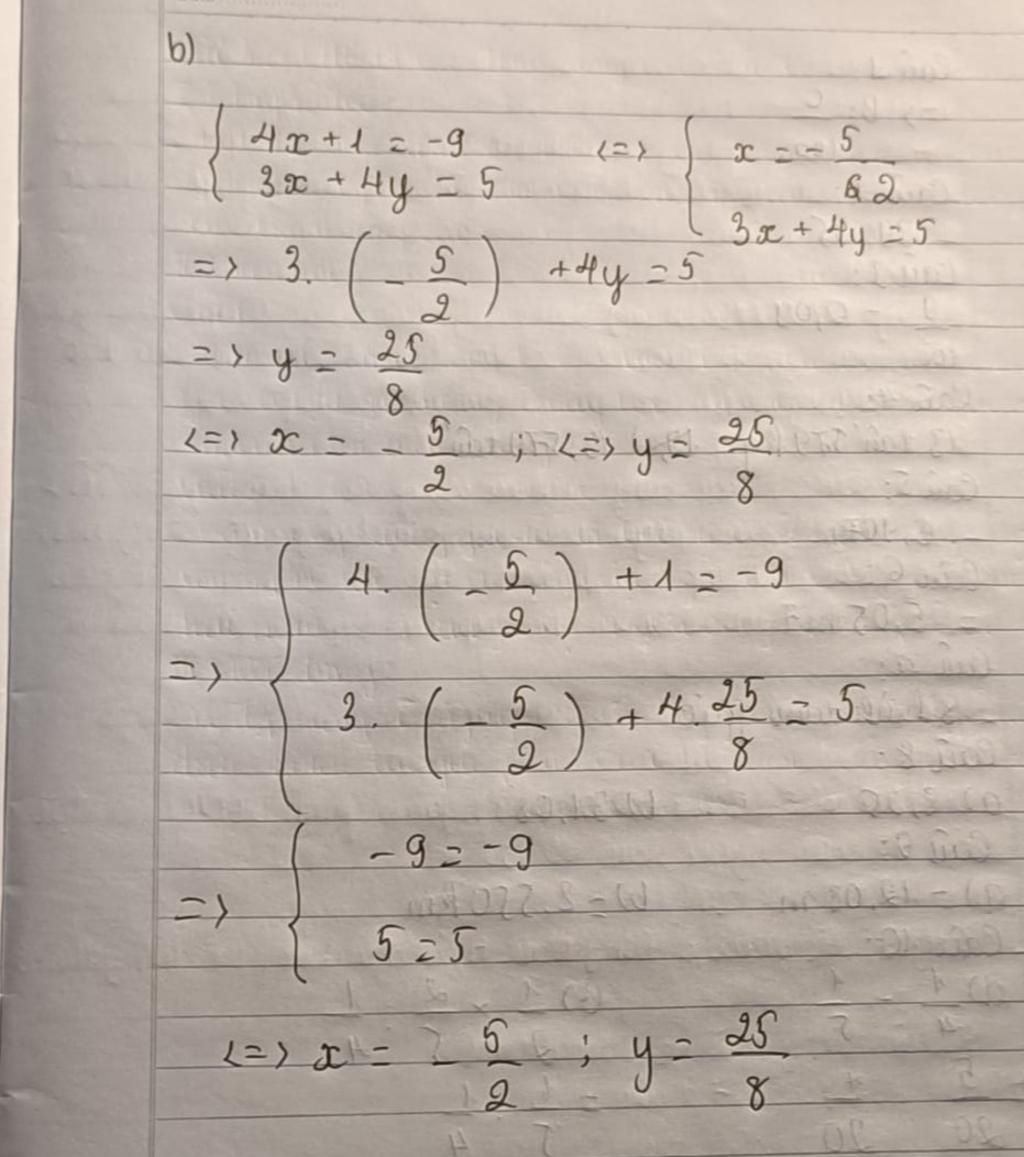 b)
{ 4x + 1 = -9 <=> { x = - 5/2
3x + 4y = 5 3x + 4y = 5
=> 3. (- 5/2) + 4y = 5
=> y = 25/8
<=> x = - 5/2 ; <=> y = 25/8
=> { 4. (- 5/2) + 1 = -9
3. (- 5/2) + 4. 25/8 = 5
=> { -9 = -9
5 = 5
<=> x = - 5/2 ; y = 25/8